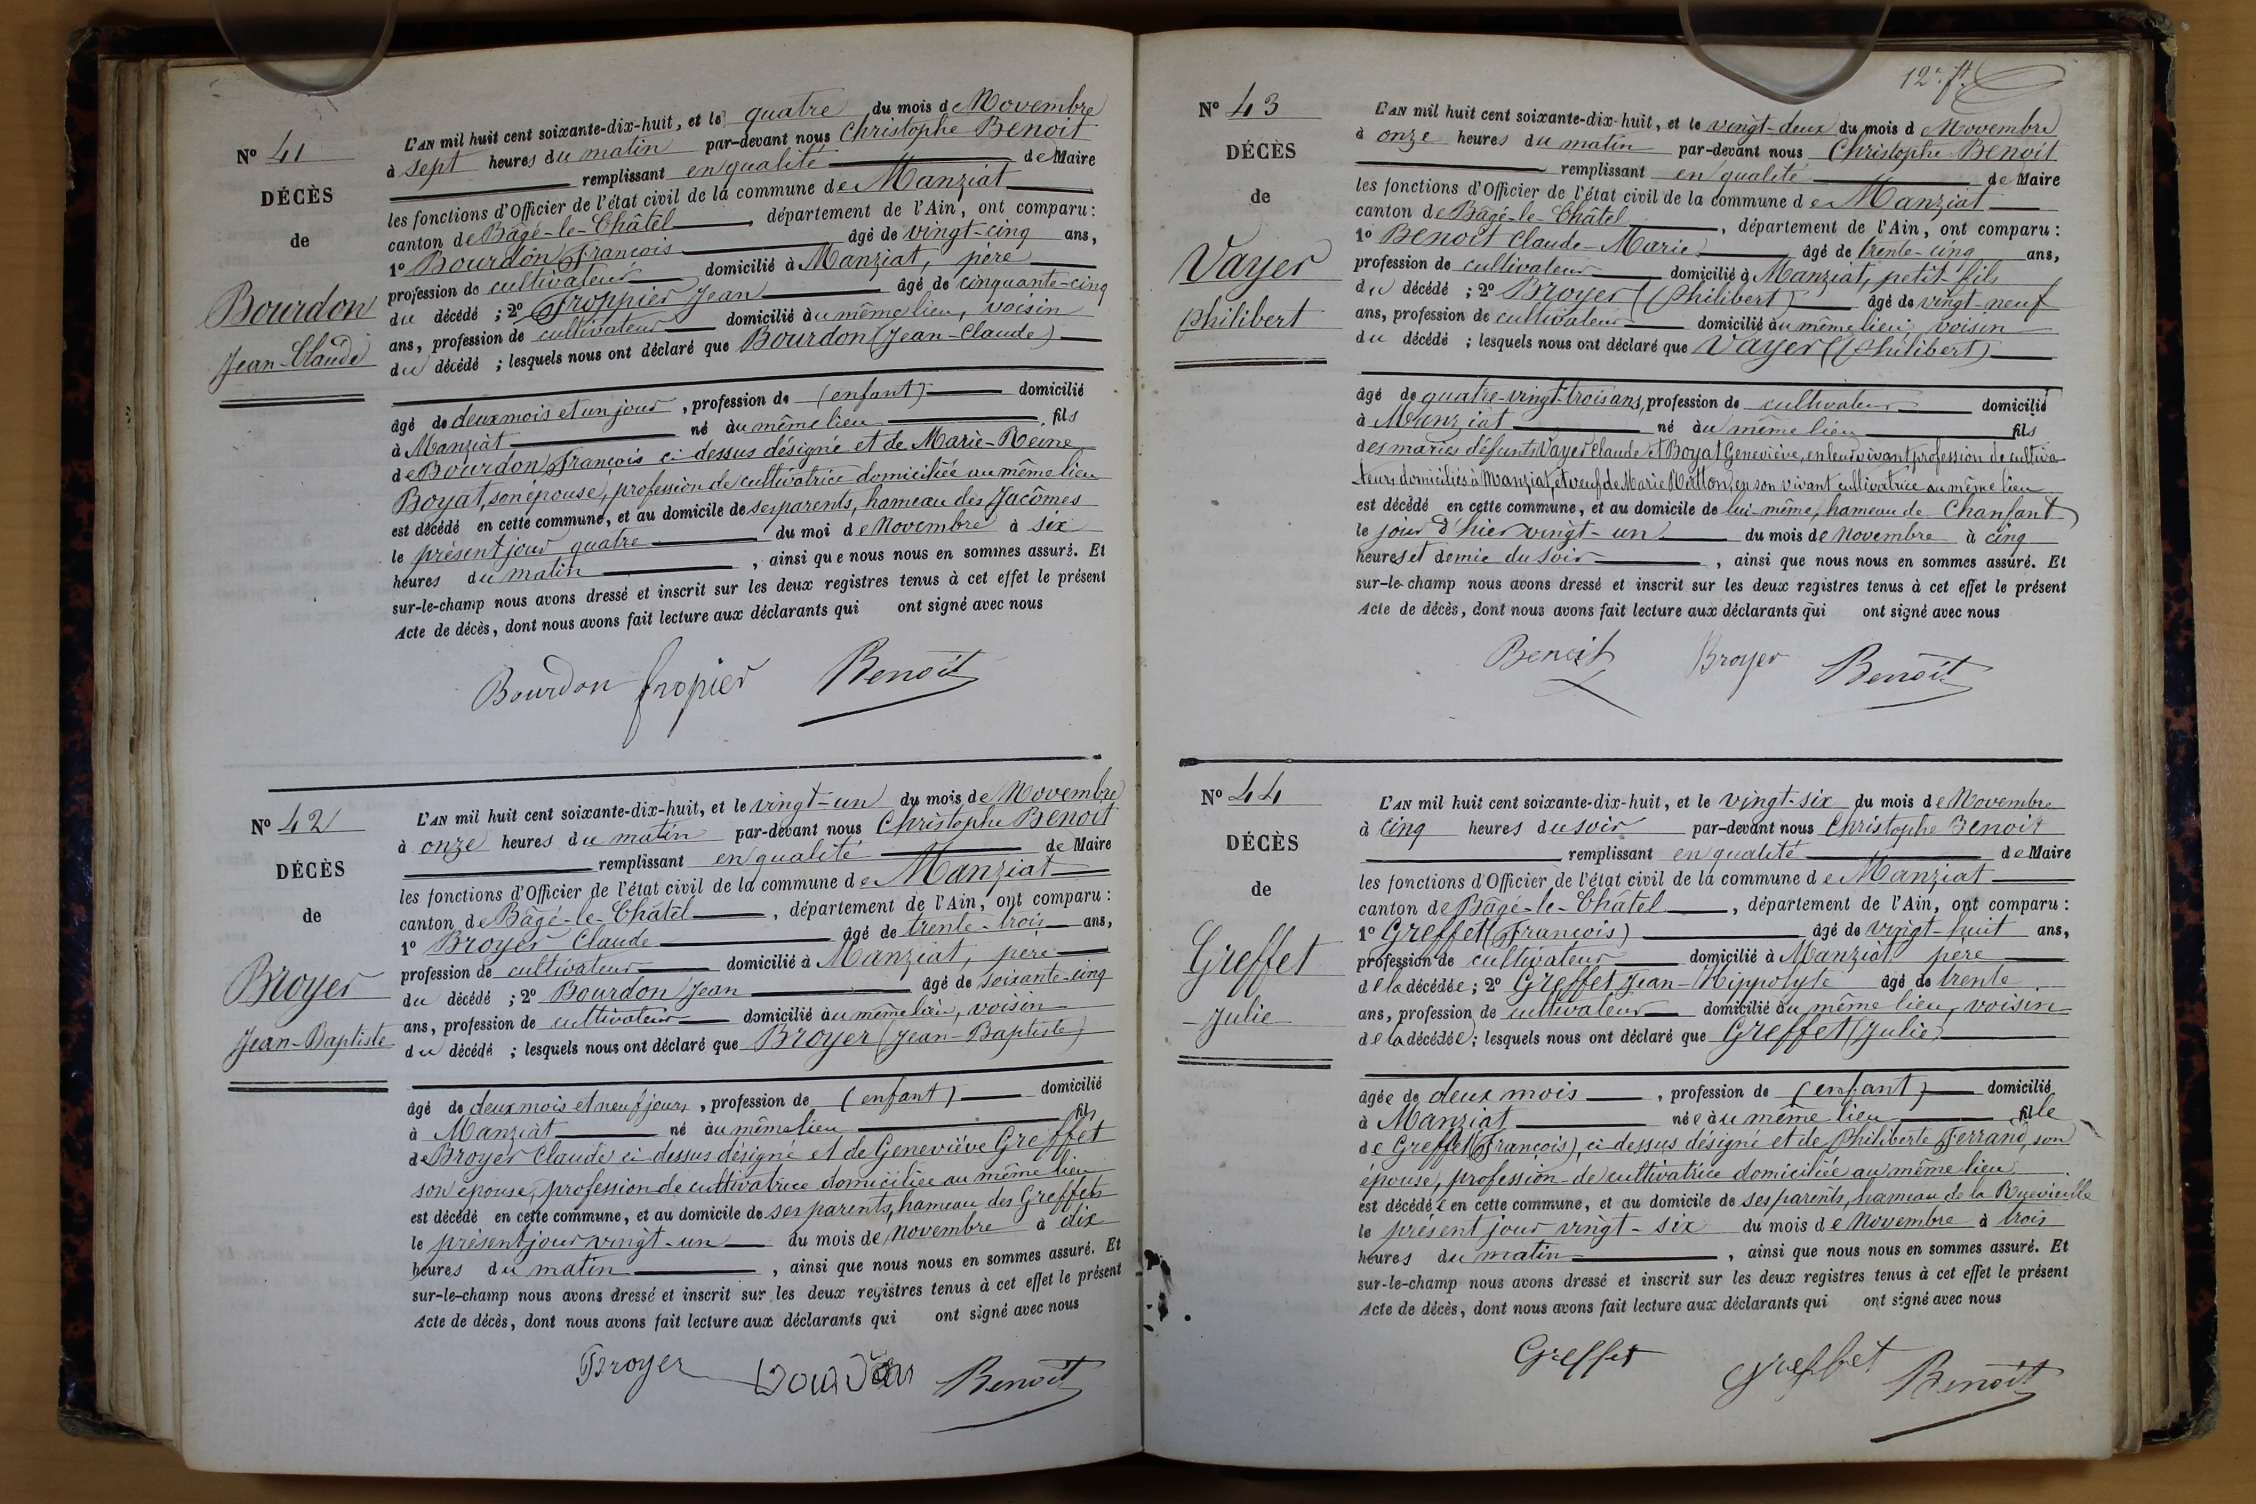 N° 41
DÉCÈS
de
Bourdon
Jean-Claude
L'AN mil huit cent soixante-dix-huit, et le quatre du mois de Novembre
à sept heures du matin par-devant nous Christophe Benoit
remplissant en qualité de Maire
les fonctions d'Officier de l'état civil de la commune de Manziat
canton de Bâgé-le-Châtel, département de l'Ain, ont comparu :
1° Bourdon François âgé de vingt-cinq ans,
profession de cultivateur domicilié à Manziat, père
du décédé ; 2° Froppier Jean âgé de cinquante-cinq
ans, profession de cultivateur domicilié au même lieu, voisin
du décédé ; lesquels nous ont déclaré que Bourdon (Jean-Claude)
âgé de deux mois et un jour, profession de (enfant) domicilié
à Manziat né au même lieu fils
de Bourdon François ci-dessus désigné et de Marie-Reine
Boyat, son épouse, profession de cultivatrice domiciliée au même lieu
est décédé en cette commune, et au domicile de ses parents, hameau des Jacômes
le présent jour quatre du moi de Novembre à six
heures du matin, ainsi que nous nous en sommes assuré. Et
sur-le-champ nous avons dressé et inscrit sur les deux registres tenus à cet effet le présent
Acte de décès, dont nous avons fait lecture aux déclarants qui ont signé avec nous
Bourdon fropier Benoit
N° 42
DÉCÈS
de
Broyer
Jean-Baptiste
L'AN mil huit cent soixante-dix-huit, et le vingt-un du mois de Novembre
à onze heures du matin par-devant nous Christophe Benoit
remplissant en qualité de Maire
les fonctions d'Officier de l'état civil de la commune de Manziat
canton de Bâgé-le-Châtel, département de l'Ain, ont comparu :
1° Broyer Claude âgé de trente-trois ans,
profession de cultivateur domicilié à Manziat, père
du décédé ; 2° Bourdon Jean âgé de soixante-cinq
ans, profession de cultivateur domicilié au même lieu, voisin
du décédé ; lesquels nous ont déclaré que Broyer (Jean-Baptiste)
âgé de deux mois et neuf jours, profession de (enfant) domicilié
à Manziat né au même lieu fils
de Broyer Claude ci-dessus désigné et de Geneviève Greffet
son épouse, profession de cultivatrice domiciliée au même lieu
est décédé en cette commune, et au domicile de ses parents, hameau des Greffets
le présent jour vingt-un du mois de Novembre à dix
heures du matin, ainsi que nous nous en sommes assuré. Et
sur-le-champ nous avons dressé et inscrit sur les deux registres tenus à cet effet le présent
Acte de décès, dont nous avons fait lecture aux déclarants qui ont signé avec nous
Broyer Bourdon Benoit
N° 43
DÉCÈS
de
Vayer
philibert
L'AN mil huit cent soixante-dix-huit, et le vingt-deux du mois d Novembre
à onze heures du matin par-devant nous Christophe Benoit
remplissant en qualité de Maire
les fonctions d'Officier de l'état civil de la commune de Manziat
canton de Bâgé-le-Châtel, département de l'Ain, ont comparu :
1° Benoit Claude-Marie âgé de trente-cinq ans,
profession de cultivateur domicilié à Manziat, petit-fils
du décédé ; 2° Broyer (philibert) âgé de vingt-neuf
ans, profession de cultivateur domicilié au même lieu, voisin
du décédé ; lesquels nous ont déclaré que Vayer (philibert)
âgé de quatre-vingt-trois ans, profession de cultivateur domicilié
à Manziat né au même lieu fils
des mariés défunts Vayer Claude et Boyat Geneviève, en leur vivant, profession de cultiva
teurs domiciliés à Manziat, et veuf de Marie en son vivant cultivatrice au même lieu
est décédé en cette commune, et au domicile de lui-même, hameau de Chanfant
le jour d'hier vingt-un du mois de Novembre à cinq
heures et demie du soir, ainsi que nous nous en sommes assuré. Et
sur-le-champ nous avons dressé et inscrit sur les deux registres tenus à cet effet le présent
Acte de décès, dont nous avons fait lecture aux déclarants qui ont signé avec nous
Benoit Broyer Benoit
N° 44
DÉCÈS
de
Greffet
Julie
L'AN mil huit cent soixante-dix-huit, et le vingt-six du mois de Novembre
à cinq heures du soir par-devant nous Christophe Benoit
remplissant en qualité de Maire
les fonctions d'Officier de l'état civil de la commune de Manziat
canton de Bâgé-le-Châtel, département de l'Ain, ont comparu :
1° Greffet (François) âgé de vingt-huit ans,
profession de cultivateur domicilié à Manziat père
de la décédée ; 2° Greffet Jean-Hippolyte âgé de trente
ans, profession de cultivateur domicilié au même lieu, voisin
de la décédée ; lesquels nous ont déclaré que Greffet (Julie)
âgée de deux mois, profession de (enfant) domicilié
à Manziat née au même lieu fille
de Greffet (François), ci-dessus désigné et de Philiberte Ferrand, son
épouse, profession de cultivatrice domiciliée au même lieu
est décédée en cette commune, et au domicile de ses parents, hameau de la Ruevieille
le présent jour vingt-six du mois de Novembre à trois
heures du matin, ainsi que nous nous en sommes assuré. Et
sur-le-champ nous avons dressé et inscrit sur les deux registres tenus à cet effet le présent
Acte de décès, dont nous avons fait lecture aux déclarants qui ont signé avec nous
Greffet Greffet Benoit